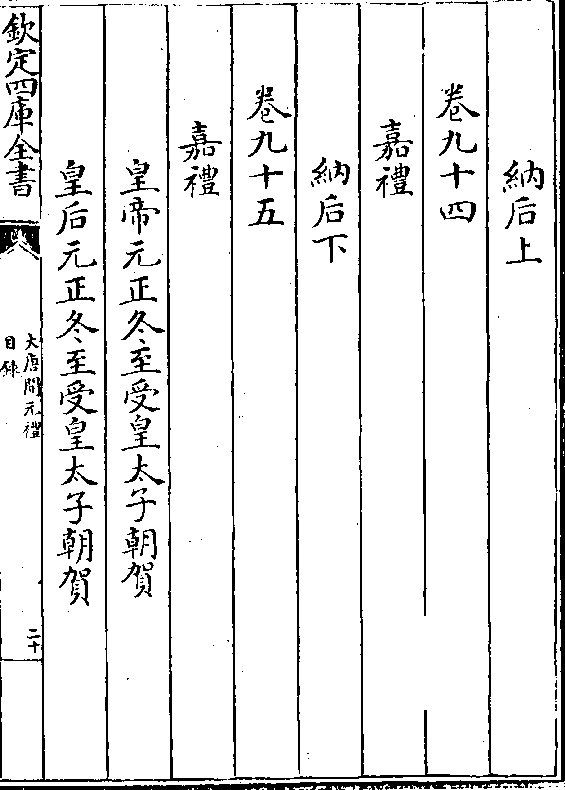 納后上
卷九十四
嘉禮
納后下
卷九十五
嘉禮
皇帝元正冬至受皇太子朝賀
皇后元正冬至受皇太子朝賀
欽定四庫全書
大唐開元禮
目錄
二十